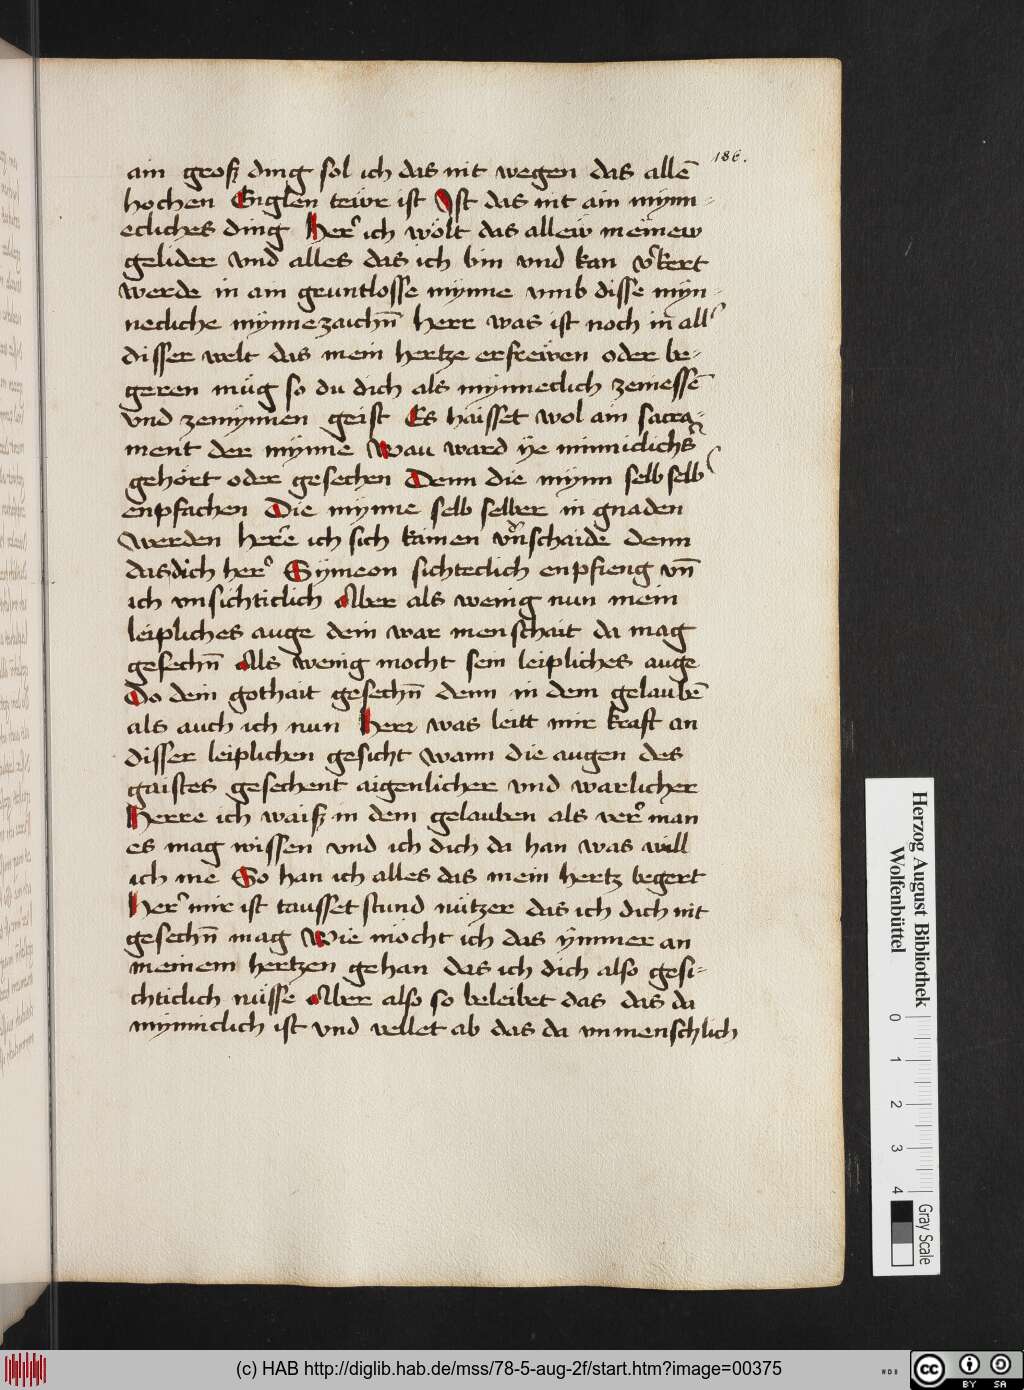 186.
ain groß ding sol ich das nit wegen das allē
hochen Englen tewr ist Ist das nit ain mynn-
ecliches ding Her' ich wölt das allew meinew
gelider vnd alles das ich bin vnd kan v'kert
werde in ain gruntlosse mynne vmb disse myn-
necliche mynnezaichn̄ Herr was ist noch in all'
disser welt das mein hertze erfrewen oder be-
geren müg so du dich als mynneclich zeniessē
vnd zemynnen geist Es haisset wol ain sacra-
ment der mynne Wau ward ye minniclichs
gehört oder gesechen Denn die mynn selb selb
enpfachen Die mynne selb selber in gnaden
werden here ich sich kainen vn̄schaide denn
das dich her' Symeon sichteclich enpfieng vn̄
ich vnsichticlich Aber als wenig nun mein
leipliches auge dein war menschait da mag
gesechn̄ Als wenig mocht sein leipliches auge
Do dein gothait gesechn̄ denn in dem gelaubē
als auch ich nun Herr was leitt mir kraft an
disser leiplichen gesicht wann die augen des
gaistes gesechent aigenlicher vnd warlicher
Herre ich waiß in dem gelauben als ver' man
es mag wissen vnd ich dich da han was will
ich me So han ich alles das mein hertz begert
Her' mir ist tausset stund nützer das ich dich nit
gesechn̄ mag Wie möcht ich das ymmer an
meinem hertzen gehan das ich dich also gesi-
chticlich nüsse Aber also so beleibet das das da
mynniclich ist vnd vellet ab das da vnmenschlich
Herzog August Bibliothek
Wolfenbüttel
0
1
2
3
4
Gray Scale
(c) HAB http://diglib.hab.de/mss/78-5-aug-2f/start.htm?image=00375
cc
BY SA